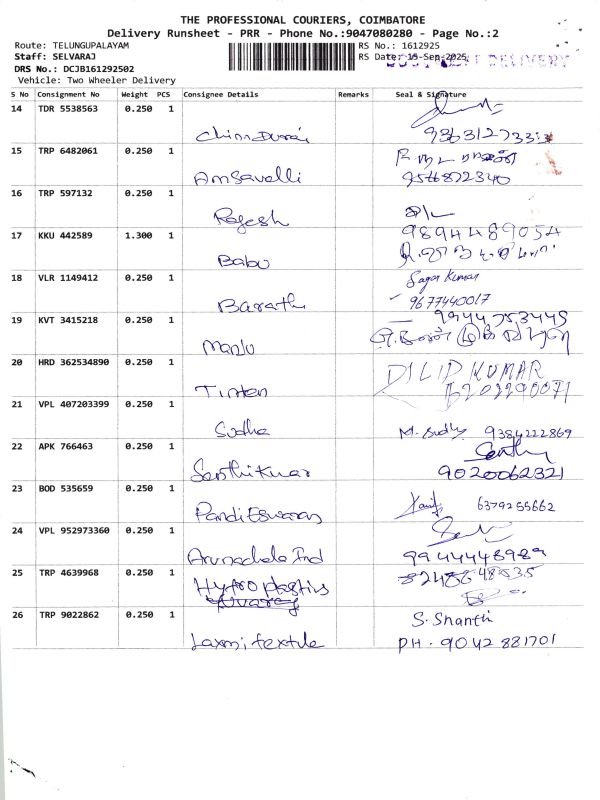 THE PROFESSIONAL COURIERS, COIMBATORE
Delivery Runsheet - PRR - Phone No.:9047080280 - Page No.:2
Route: TELUNGUPALAYAM RS No.: 1612925
Staff: SELVARAJ RS Date: 15-Sep-2025 DELIVERY
DRS No.: DCJB161292502
Vehicle: Two Wheeler Delivery
S No Consignment No Weight PCS Consignee Details Remarks Seal & Signature
14 TDR 5538563 0.250 1
Chinndurai 9363127333
15 TRP 6482061 0.250 1
Amsavelli 9566872340
16 TRP 597132 0.250 1
Rajesh
17 KKU 442589 1.300 1 9894489054
Babu
18 VLR 1149412 0.250 1 Sagar Kumar
Barath 9677440017
19 KVT 3415218 0.250 1 9944753445
Manju
20 HRD 362534890 0.250 1 DILIP KUMAR
21 VPL 407203399 0.250 1
Sudha 9384222869
22 APK 766463 0.250 1
Senthilkumar 9020062321
23 BOD 535659 0.250 1
Pandieswaran 6379255662
24 VPL 952973360 0.250 1
Arunachala Ind 9944448989
25 TRP 4639968 0.250 1
26 TRP 9022862 0.250 1 S. Shanthi
Laxmi textile PH - 9042881701